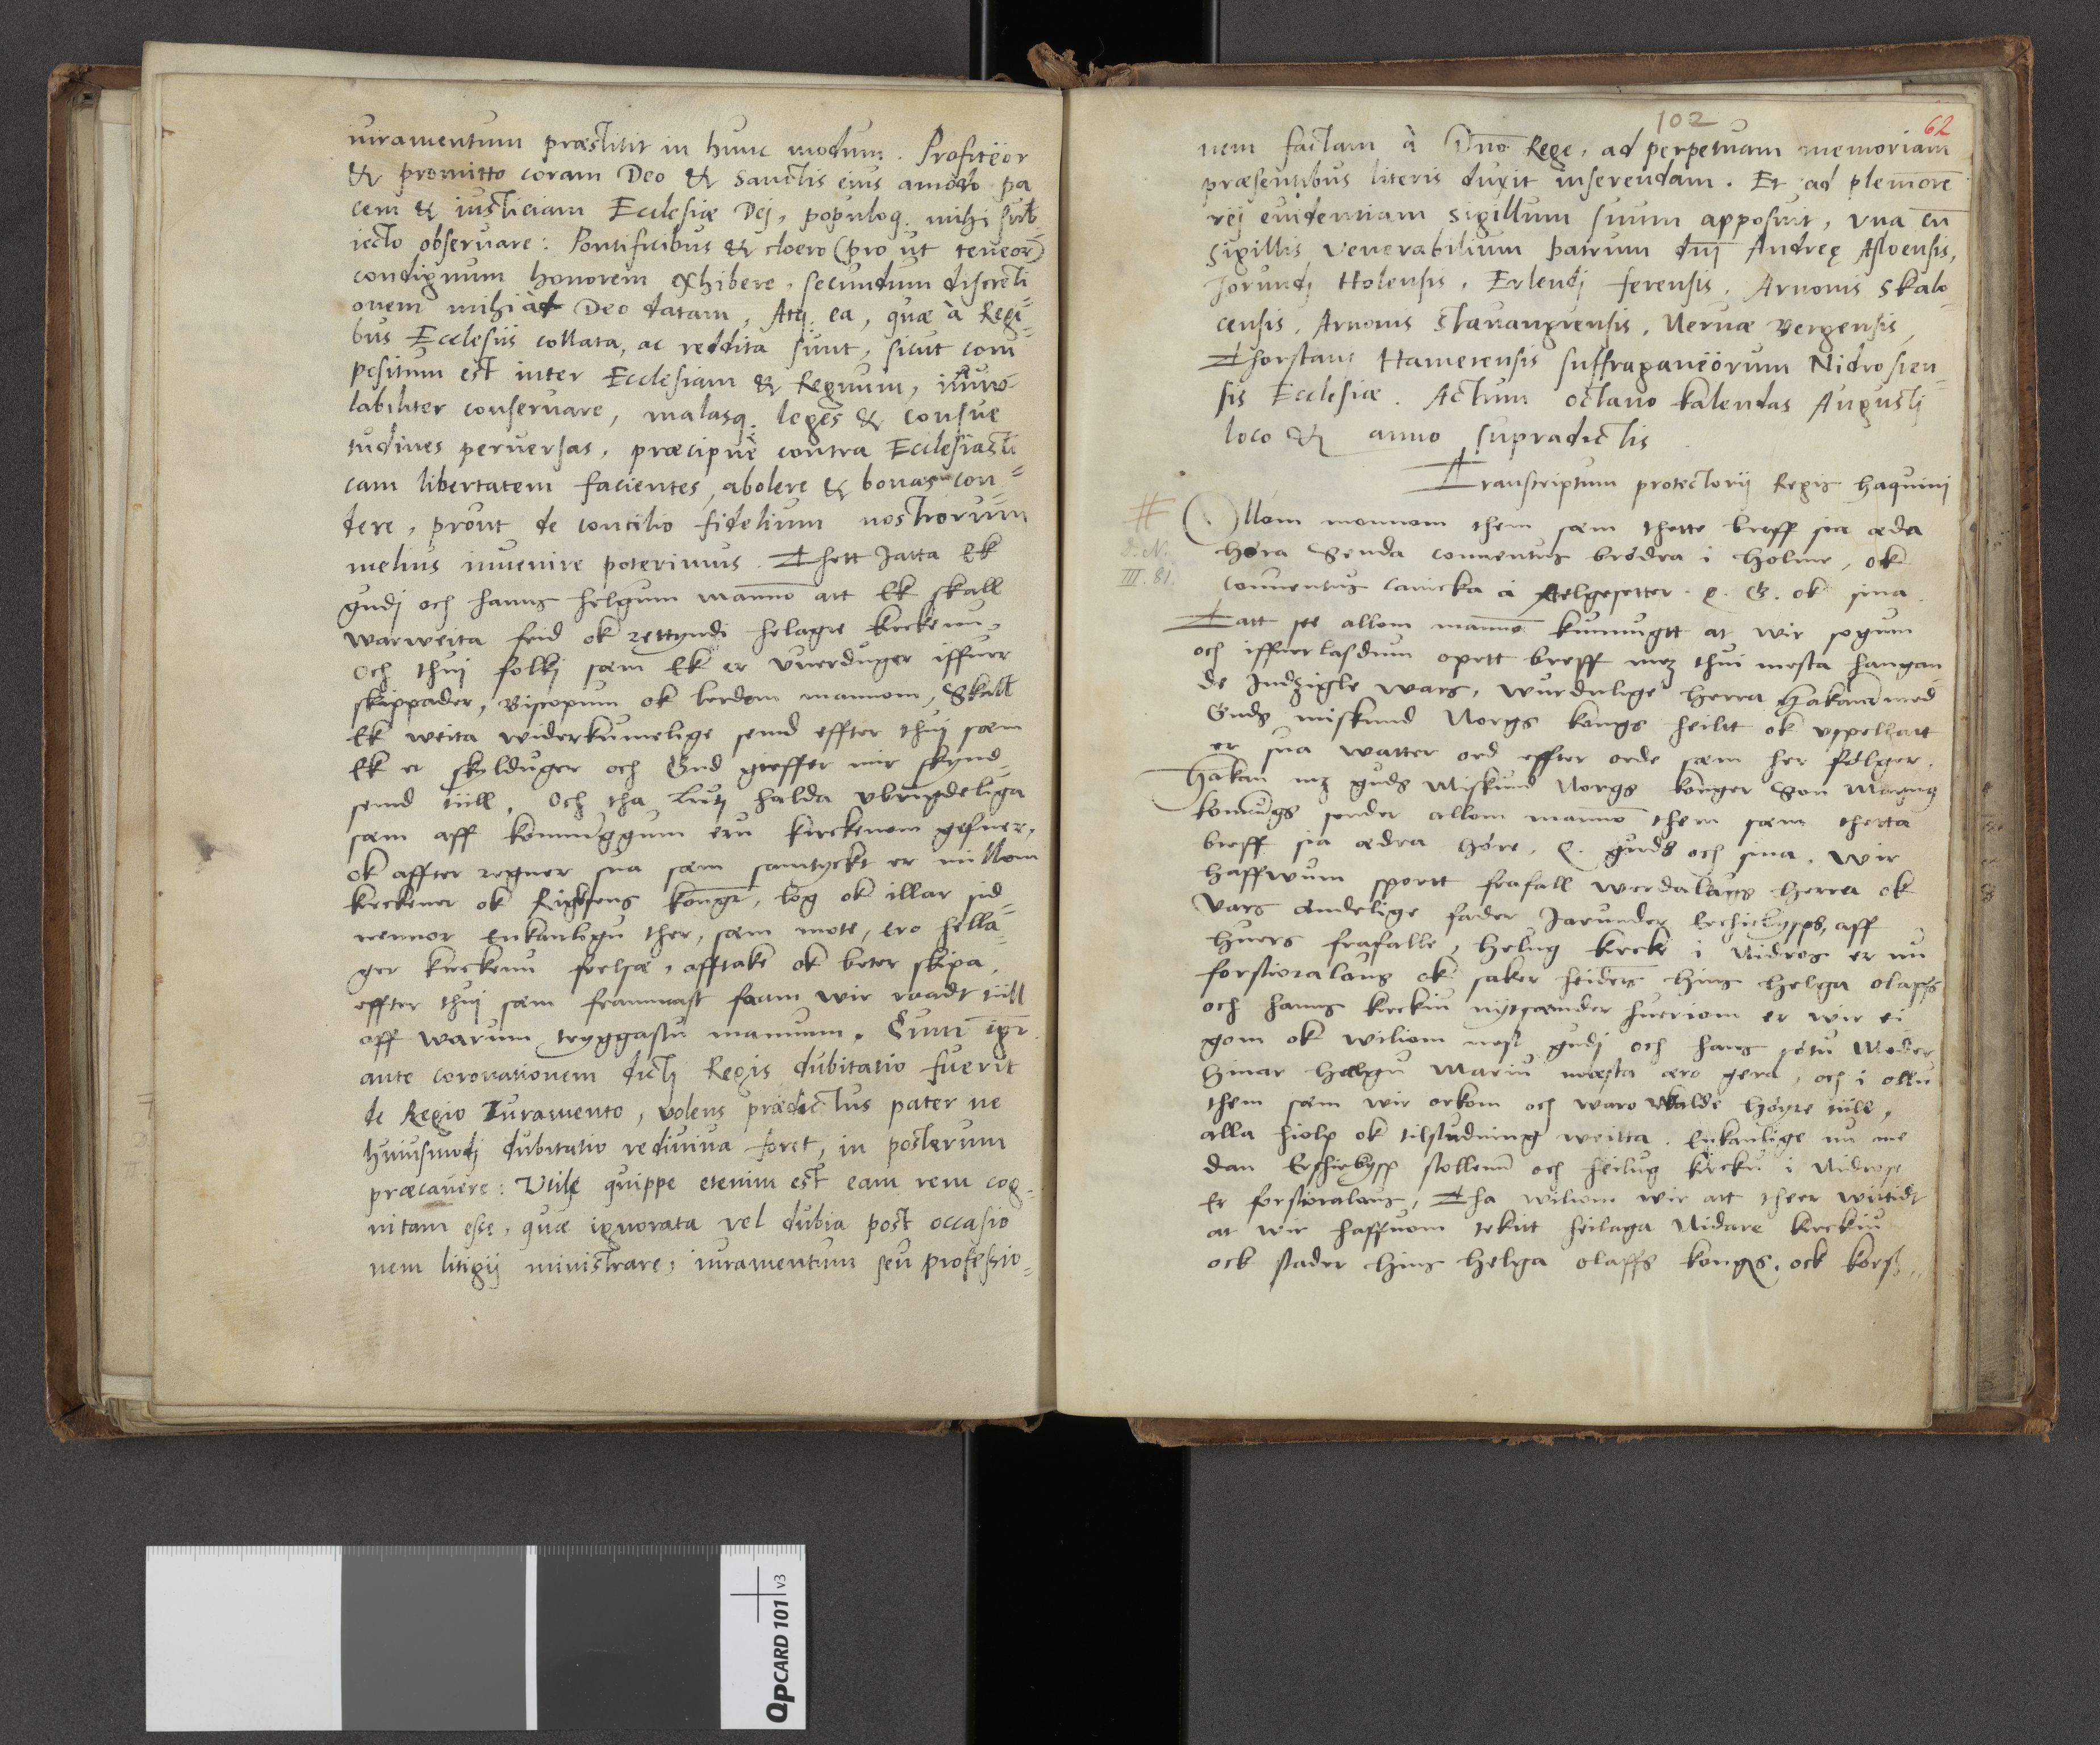 iuramentum præstitit in hunc modum. Profiteor
& promitto coram Deo & Sanctis eius amodo pa
cem & iusticiam Ecclesiæ Dej, populoq. mihi sub
iecto observare: Pontificibus & cloero (pro ut teneor)
condignum honorem exhibere, secundum discreti
onem mihi ad Deo datam, Atq. ea, quæ à Regi=
bus Ecclesiis collata, ac reddita sunt, sicut com
positum est inter Ecclesiam & Regnum, inuio
labiliter conseruare, malasq. leges & consue
tudines peruersas, præcipuè contra Ecclesiasti
cam libertatem facientes, abolere & bonas con=
dere, prout de concilio fidelium nostrorum
melius inuenire poterimus. Thett Jatta Ek
gudj och hanns helgum mannō att Ek skall
warweita frid ok rettyndi helagre kirckenn,
Och thuj folkj sæm Ek er vuerduger iffuer
skippader, Biscopum ok lerdom mannom, Skall
Ek weita widerkumelige semd effter thuj sæm
Ek er skylduger och Gud gieffer mir skynd=
semd tiill. Och tha luti halda vbrigdeliga
sæm aff konnuggum eru kirckenom gefner,
ok affter regner sua sæm samtyckt er millom
kirckener ok Rigkens kongr, log ok illar sid=
nennor Enkanligu ther, sæm mote, ero hella=
ger kirckenn frelsæ, afftake ok beter skipa,
effter thuj sæm frammast faam wir raadt tiill
aff warum tryggastu mannum. Cum igr̄
ante coronationem dictj Regis dubitatio fuerit
de Regio Iuramento, volens prædictus pater ne
huiusmodj dubitatio rediuiua foret, in posterum
præcauere: Utile quippe etenim est eam rem cog=
nitam esse, quæ ignorata vel dubia post occasio
nem litigij ministrare, iuramentum seu professio=
102
62
nem factam à Dnō Rege, ad perpetuam memoriam
præsentibus literis duxit inserendam. Et ad plemorē
rej euidentiam sigillum suum apposuit, vna cū
sigillis venerabilium patrum dnj Andreę Asloensis,
Jorundj Holensis, Erlendj ferensis, Arnonis Skalo
censis, Arnonis Stauangrensis, Neruæ Bergensis,
Thorstanj Hamerensis suffraganëorum Nidrosien=
sis Ecclesiæ. Actum octauo kalendas Augustj
loco & anno supradictis
Transcriptum protectorij Regis Haquini
#
D. N.
III. 81.
Ollom monnom them sæm thette breff sia æda
høra Senda conuentus brødra i Holme, ok
conuentus canicka a Helgesetter. Q. G. ok sina.
Tatt see allom mannō kunnugtt at wir sogum
och iffuerlasdum opett breff mꝫ thui mesta hangan
de Jndzigle wars, wurdulige herra Hakans med
Guds miskund Norgs kongs heilt ok vspellatt
er sua watter ord effter orde sæm her følger.
Hakan mꝫ guds Miskund Norgs konger Son Magnus
konnūgs sender allom mannō them sæm thetta
breff sia ædra høre, Q. guds och sina. Wir
haffwum sportt frafall werdalags herra ok
vars Andelige fader Jarunder Erchiebysps, aff
huers frafalle, helug kircke i Nidros er nu
forstioralaus ok saker heiders hins helga olaffs
och hanns kirckiu nytsæmder hueriom er wir ei
gom ok wiliom nest gudj och hans søtu Moder
hinar hælgu Mariu mæsta æro gera, och i ollu
them sæm wir orkom och waro walde høyre tiill,
alla hiolp ok tilstudning weitta. Enkanlige nu me
dan Erchiebysp stollenn och heilug kircku i Nidrose
Er forstioralaus, Tha wiliom wir att theer wittidt
at wir haffuom tekitt heilaga Nidare kirckiu
ock stader hins helga olaffs kongs, ock korss=